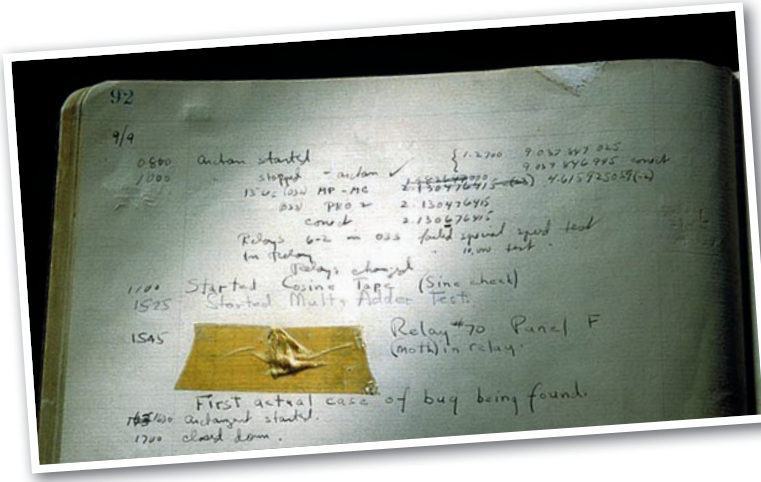 92
9/9
0800 antan started
1000 " stopped - antan ✓ { 1.2700 9.037 847 025
9.037 846 995 correct
13"uc (032) MP - MC 2.130476415 (-3) 4.615925059 (-2)
033 PRO 2 2.130476415
correct 2.130676415
Relays 6-2 in 033 failed special speed test
in relay " 10.000 test.
Relays changed
1100 Started Cosine Tape (Sine check)
1525 Started Mult+ Adder Test.
1545 Relay #70 Panel F
(moth) in relay.
First actual case of bug being found.
1630 antangent started.
1700 closed down.